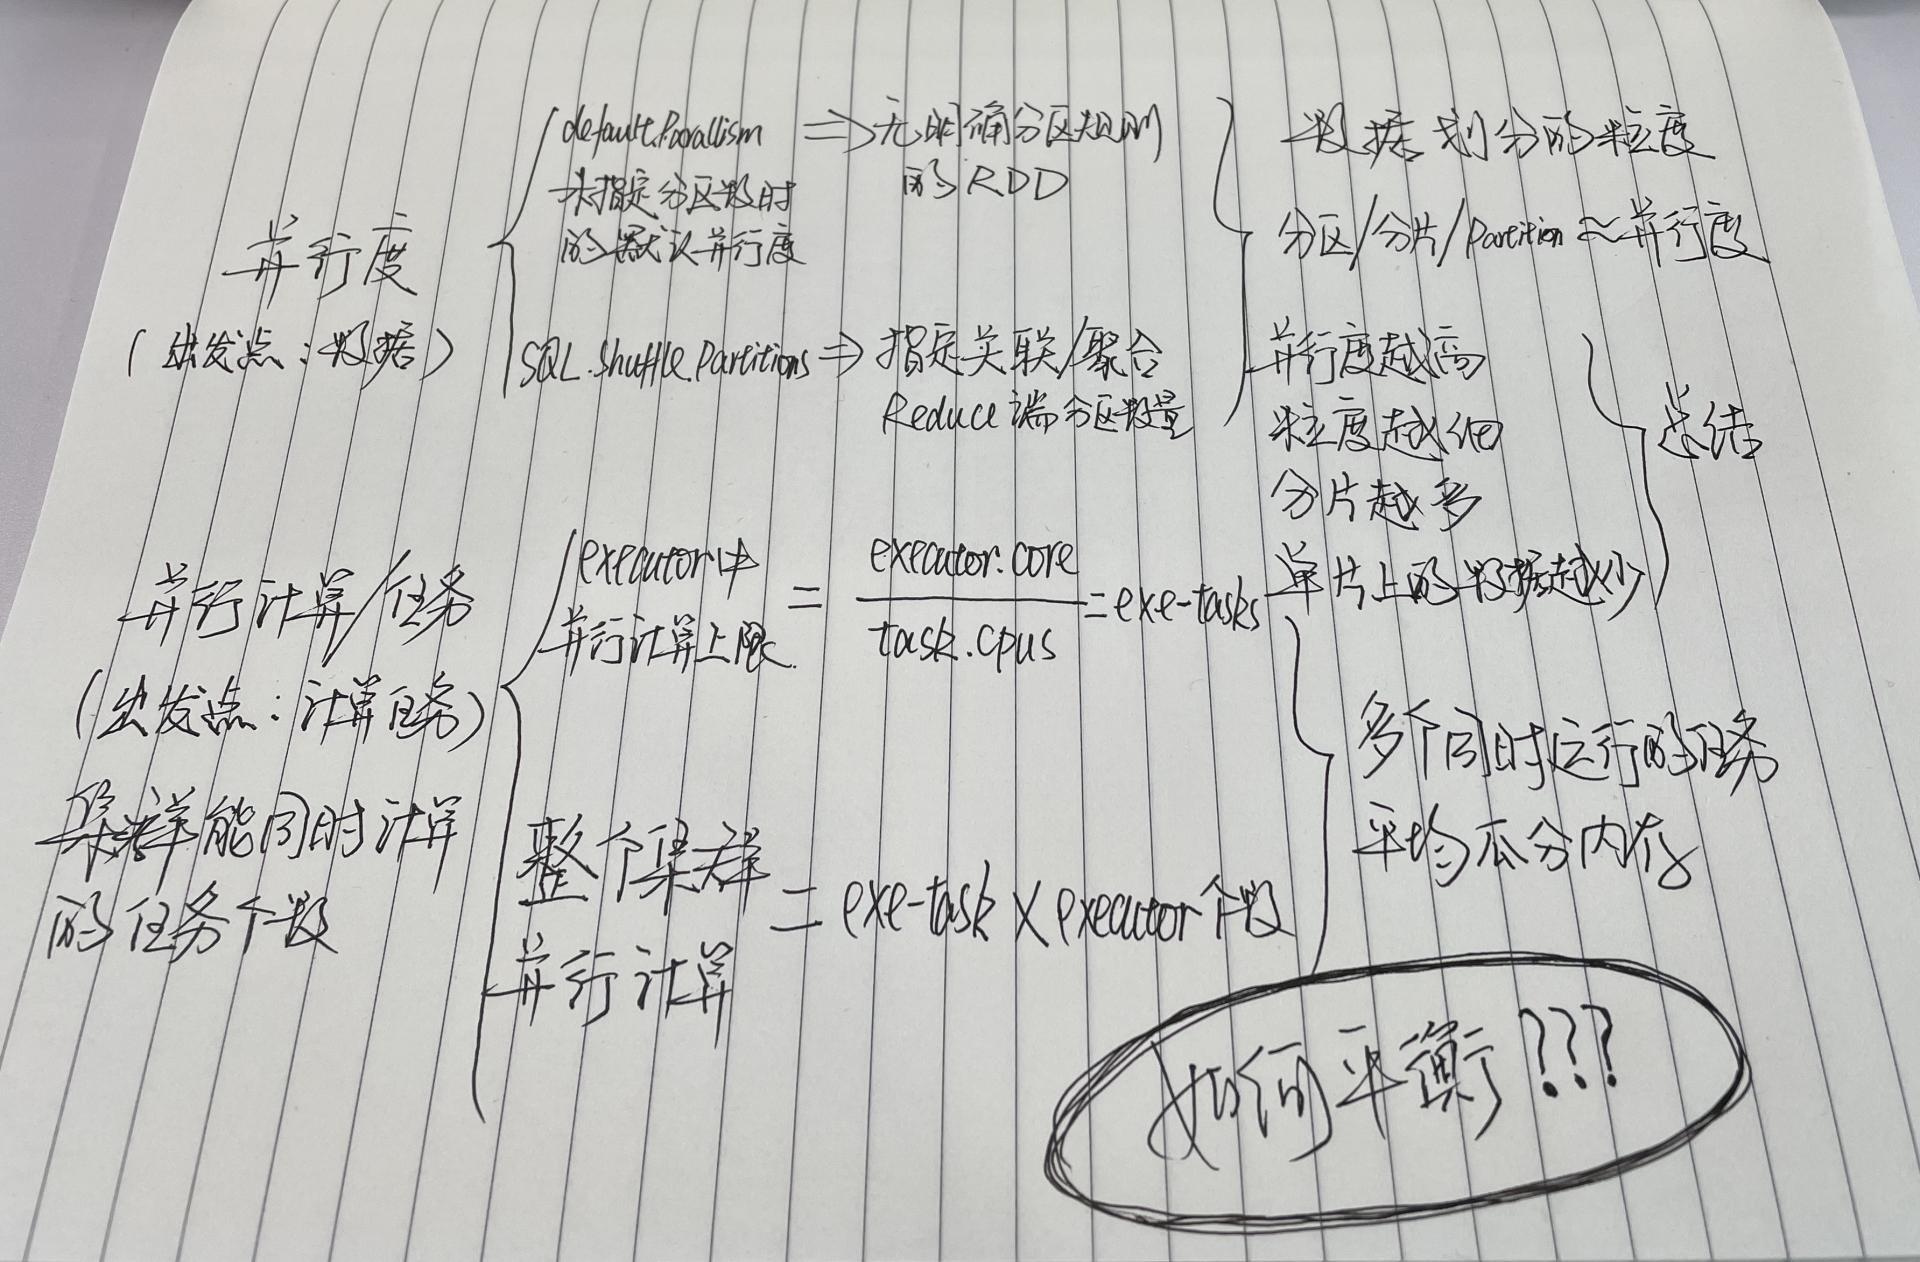 并行度
(出发点：数据)
default.Parallism
未指定分区数时
的默认并行度
⇒无明确分区规则
的RDD
SQL.Shuffle.Partitions ⇒ 指定关联/聚合
Reduce端分区数量
数据划分的粒度
分区/分片/Partition≈并行度
并行度越高
粒度越细
分片越多
单片上的数据越少
总结
并行计算/任务
(出发点：计算任务)
集群能同时计算
的任务个数
executor中
并行计算上限
=
executor.core
task.cpus
=exe-tasks
整个集群
并行计算
= exe-task × executor个数
多个同时运行的任务
平均瓜分内存
如何平衡???